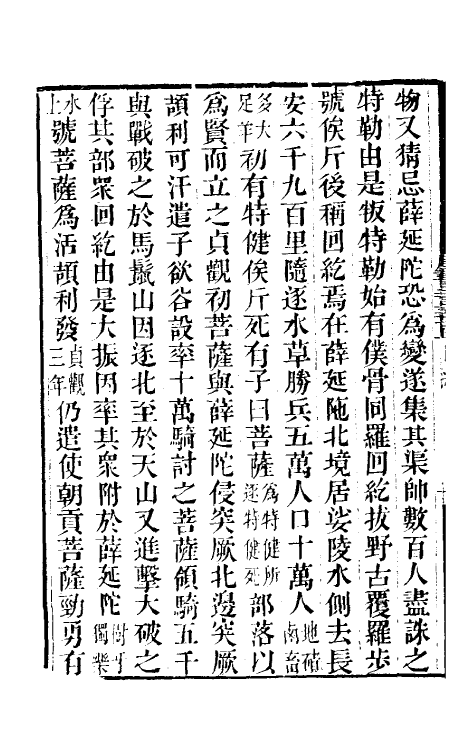 物又猜忌薛延陀恐為變遂集其渠帥數百人盡誅之
特勒由是叛特勒始有僕骨同羅回紇拔野古覆羅步
號俟斤後稱回紇焉在薛延陁北境居娑陵水側去長
安六千九百里隨逐水草勝兵五萬人口十萬人地磧鹵畜
多大足羊初有特健俟斤死有子曰菩薩為特健所逐特健死部落以
為賢而立之貞觀初菩薩與薛延陀侵突厥北邊突厥
頡利可汗遣子欲谷設率十萬騎討之菩薩領騎五千
與戰破之於馬鬛山因逐北至於天山又進擊大破之
俘其部眾回紇由是大振因率其眾附於薛延陀樹牙獨樂
水上號菩薩為活頡利發貞觀三年仍遣使朝貢菩薩勁勇有